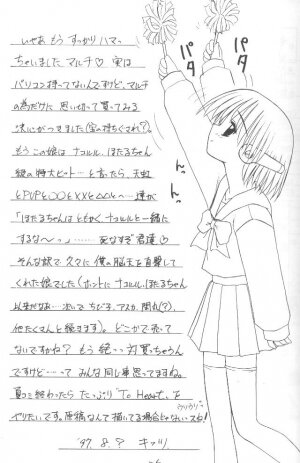 いやあ もう すっかり ハマっ
ちゃいました マルチ♡ 実は
パソコン持ってないんですけど、マルチ
の為だけに 思い切って買ってみる
決心がつきました
もう この娘は ナコルル、ほたるちゃん
級の特大ヒット…と言ったら、天虹
とPUPと○○と××と△△と…連が
「ほたるちゃんは ともかく、ナコルルと一緒に
するな〜っ」……死なすぞ君達♡
そんな訳で 久々に 僕の脳天を直撃して
くれた娘でした(ホントに ナコルル、ほたるちゃん
以来だなあ…次いで ちび子、アスカ、
他たくさんと続きます)。どこかで売って
ないですかね? もう 絶っ対買っちゃうん
ですけど…って みんな同じ事思ってますね。
買って終わったら たっぷり "To Heart" を
やりたいです。原稿なんて描いてる場合じゃないっスね!
'97. 8. ?
パタ
パタ
っ
っ